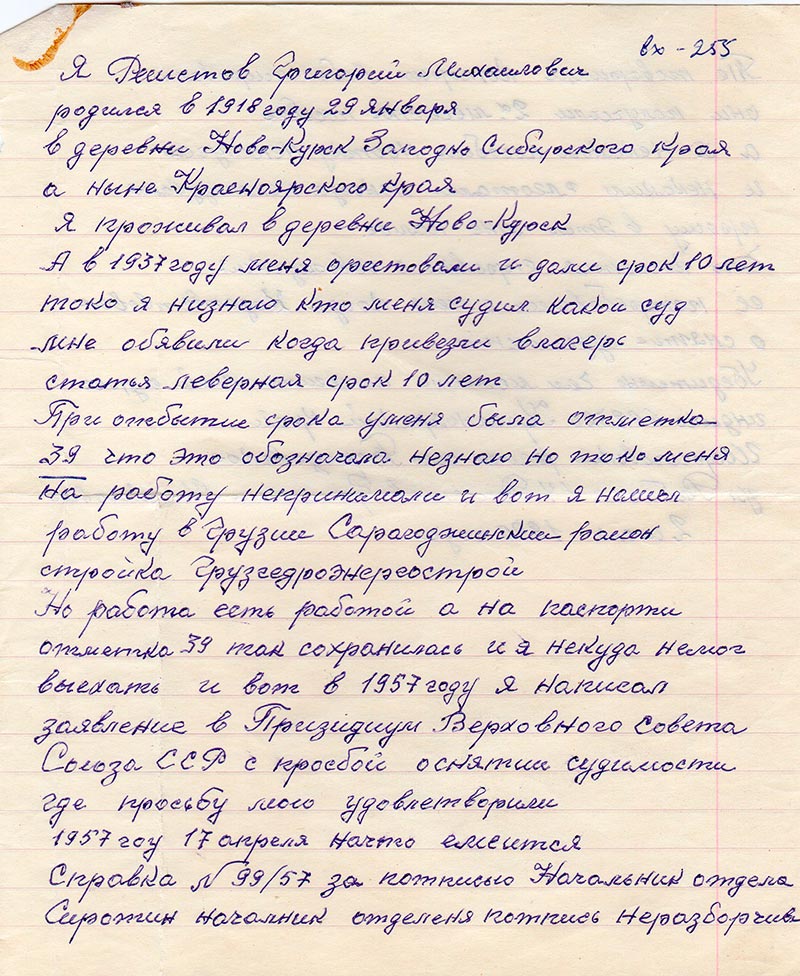 вх - 255
Я Феистов Григорий Михаилович
родился в 1918 году 29 Января
в деревни Ново-Курск Заподнь Сибирского края
а ныне Красноярского края
Я проживал в деревни Ново-Курск
А в 1937 году меня орестовали и дали срок 10 лет
токо я низнаю кто меня судил какои суд
мне обявили когда привезли влагерь
статья леверная срок 10 лет
При отбытие срока уменя была отметка
39 что это обозначала незнаю но токо меня
на работу непринимали и вот я нашы
работу в Грузии Сарагоджинскии раион
стройка Грузгедроэнергострой
Но работа есть работой а на паспорти
отметка 39 так сохранилась и я некуда немог
выехать и вот в 1957 году я написал
заявление в Призидиум Верховного Совета
Союза ССР с прозбой оснятии судимости
где просьбу мою удовлетворили
1957 гоу 17 апреля начто емеится
Справка № 99/57 за потписью Начальник отдела
Сиротин началник отделеня потпись неразборчив